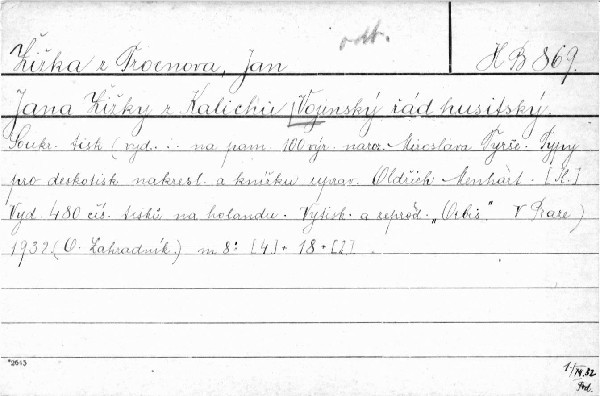 odb.
Žižka z Trocnova, Jan H B 869.
Jana Žižky z Kalichu Vojenský řád husitský.
Soukr. tisk (vyd. .. na pam. 100 výr. naroz. Miroslava Tyrše. Typy
pro deskotisk nakresl. a knížku uprav. Oldřich Menhart. [Il.]
Vyd. 480 čís. tisků na holandu. Vytisk. a reprod. „Orbis" v Praze)
1932 (O. Zahradník.) m 8° [4] + 18 + [2] .
*2643